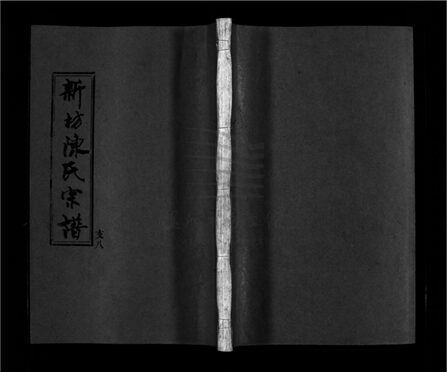 新坊陳氏宗譜
支八